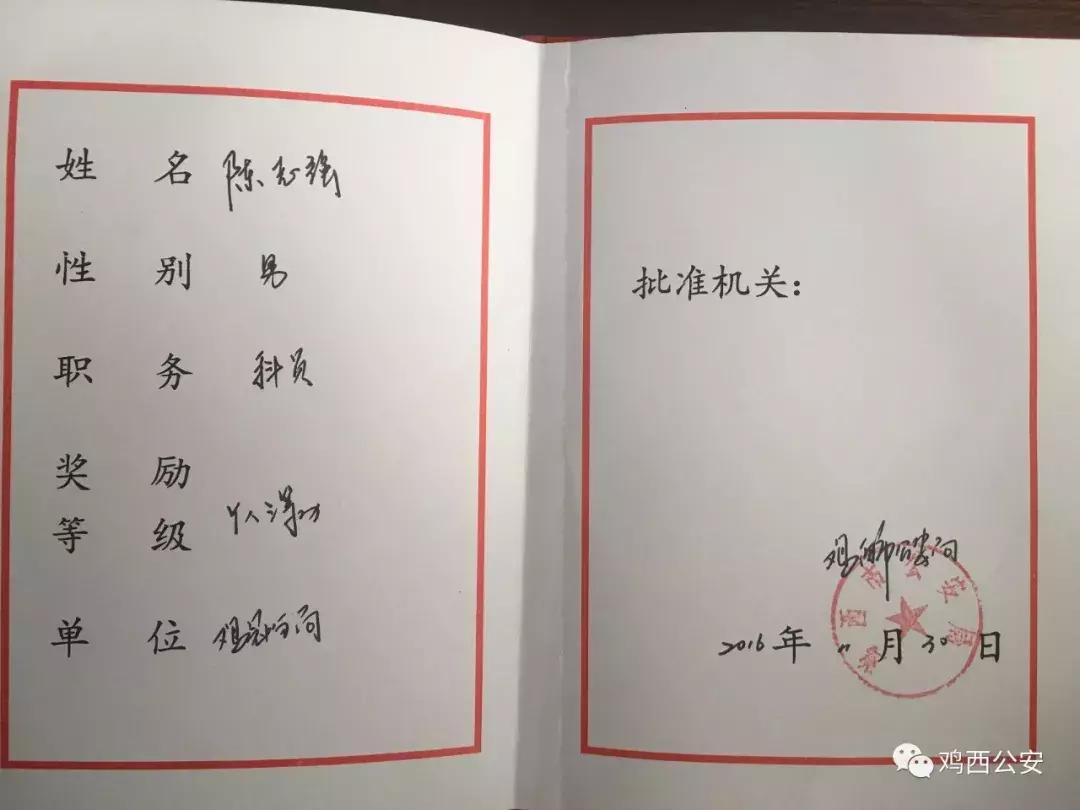 姓 名 陈志强
性 别 男
职 务 科员
奖 励
等 级 个人三等功
单 位 鸡冠分局
批准机关：
鸡西市公安局
2016年11月30日
鸡西市公安局
鸡西公安